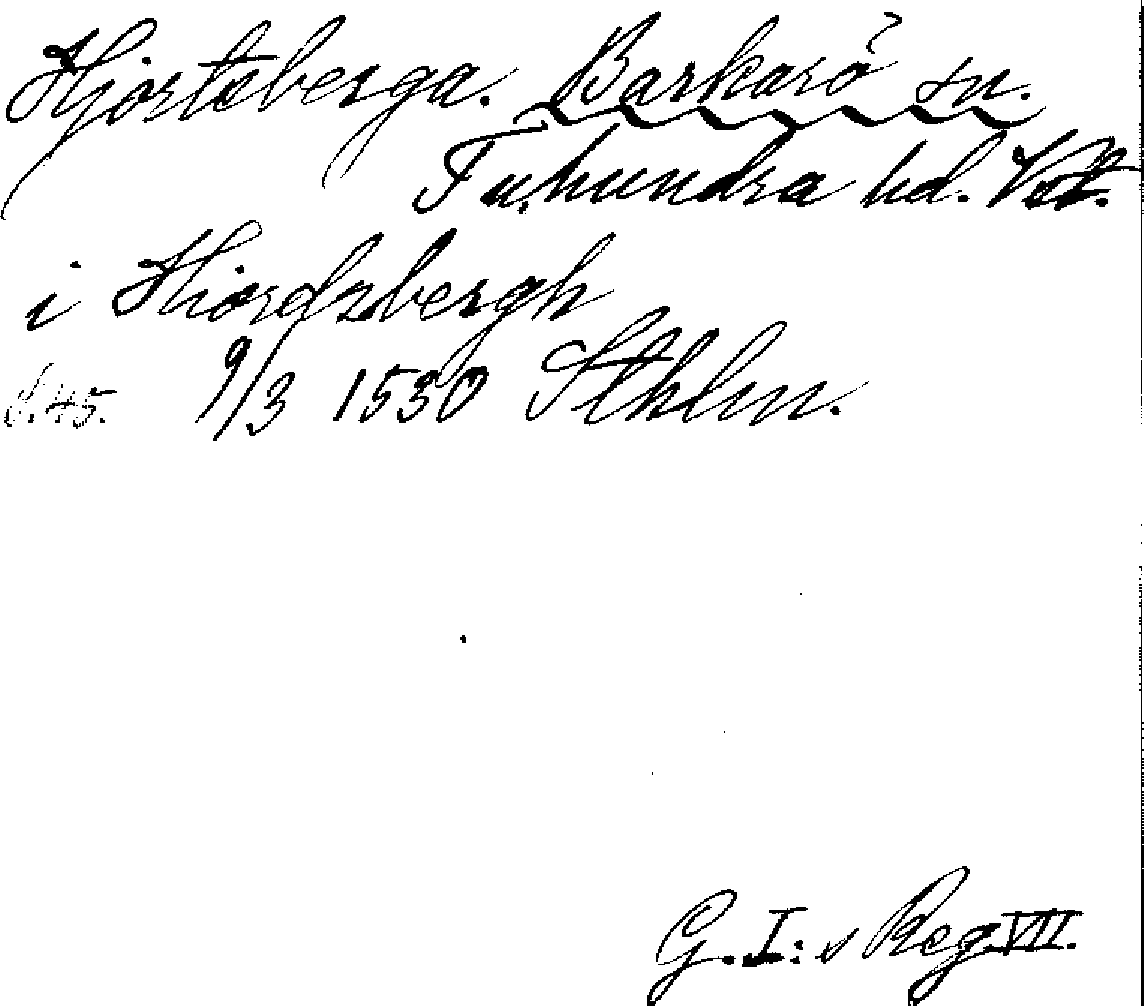 Hjortsberga. Barkarö sn.
Tuhundra hd. Vstm.
i Hiordzbergh
s. 45. 9/3 1530 Sthlm.
G. I:s Reg VII.